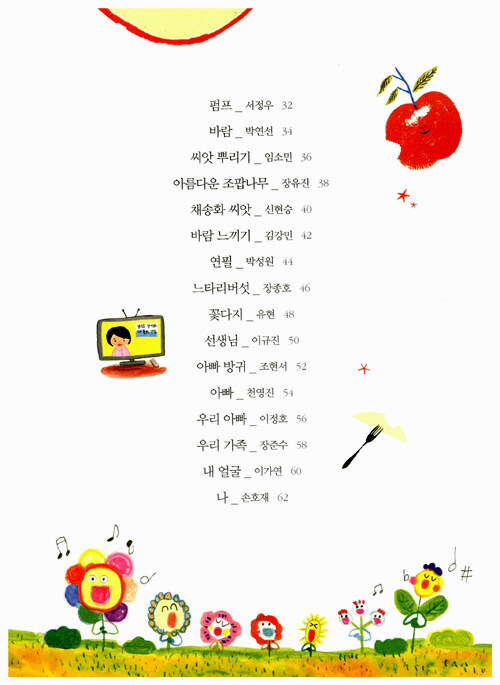 펌프 _ 서정우 32
바람 _ 박연선 34
씨앗 뿌리기 _ 임소민 36
아름다운 조팝나무 _ 장유진 38
채송화 씨앗 _ 신현승 40
바람 느끼기 _ 김강민 42
연필 _ 박성원 44
느타리버섯 _ 장종호 46
꽃다지 _ 유현 48
선생님 _ 이규진 50
아빠 방귀 _ 조현서 52
아빠 _ 천영진 54
우리 아빠 _ 이정호 56
우리 가족 _ 장준수 58
내 얼굴 _ 이가연 60
나 _ 손호재 62